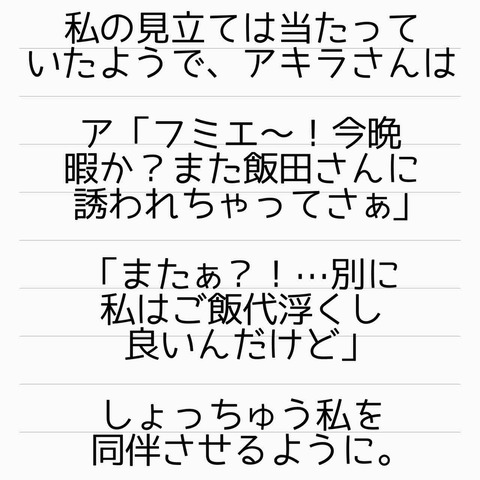 私の見立ては当たって
いたようで、アキラさんは
ア「フミエ〜！今晩
暇か？また飯田さんに
誘われちゃってさぁ」
「またぁ？！…別に
私はご飯代浮くし
良いんだけど」
しょっちゅう私を
同伴させるように。